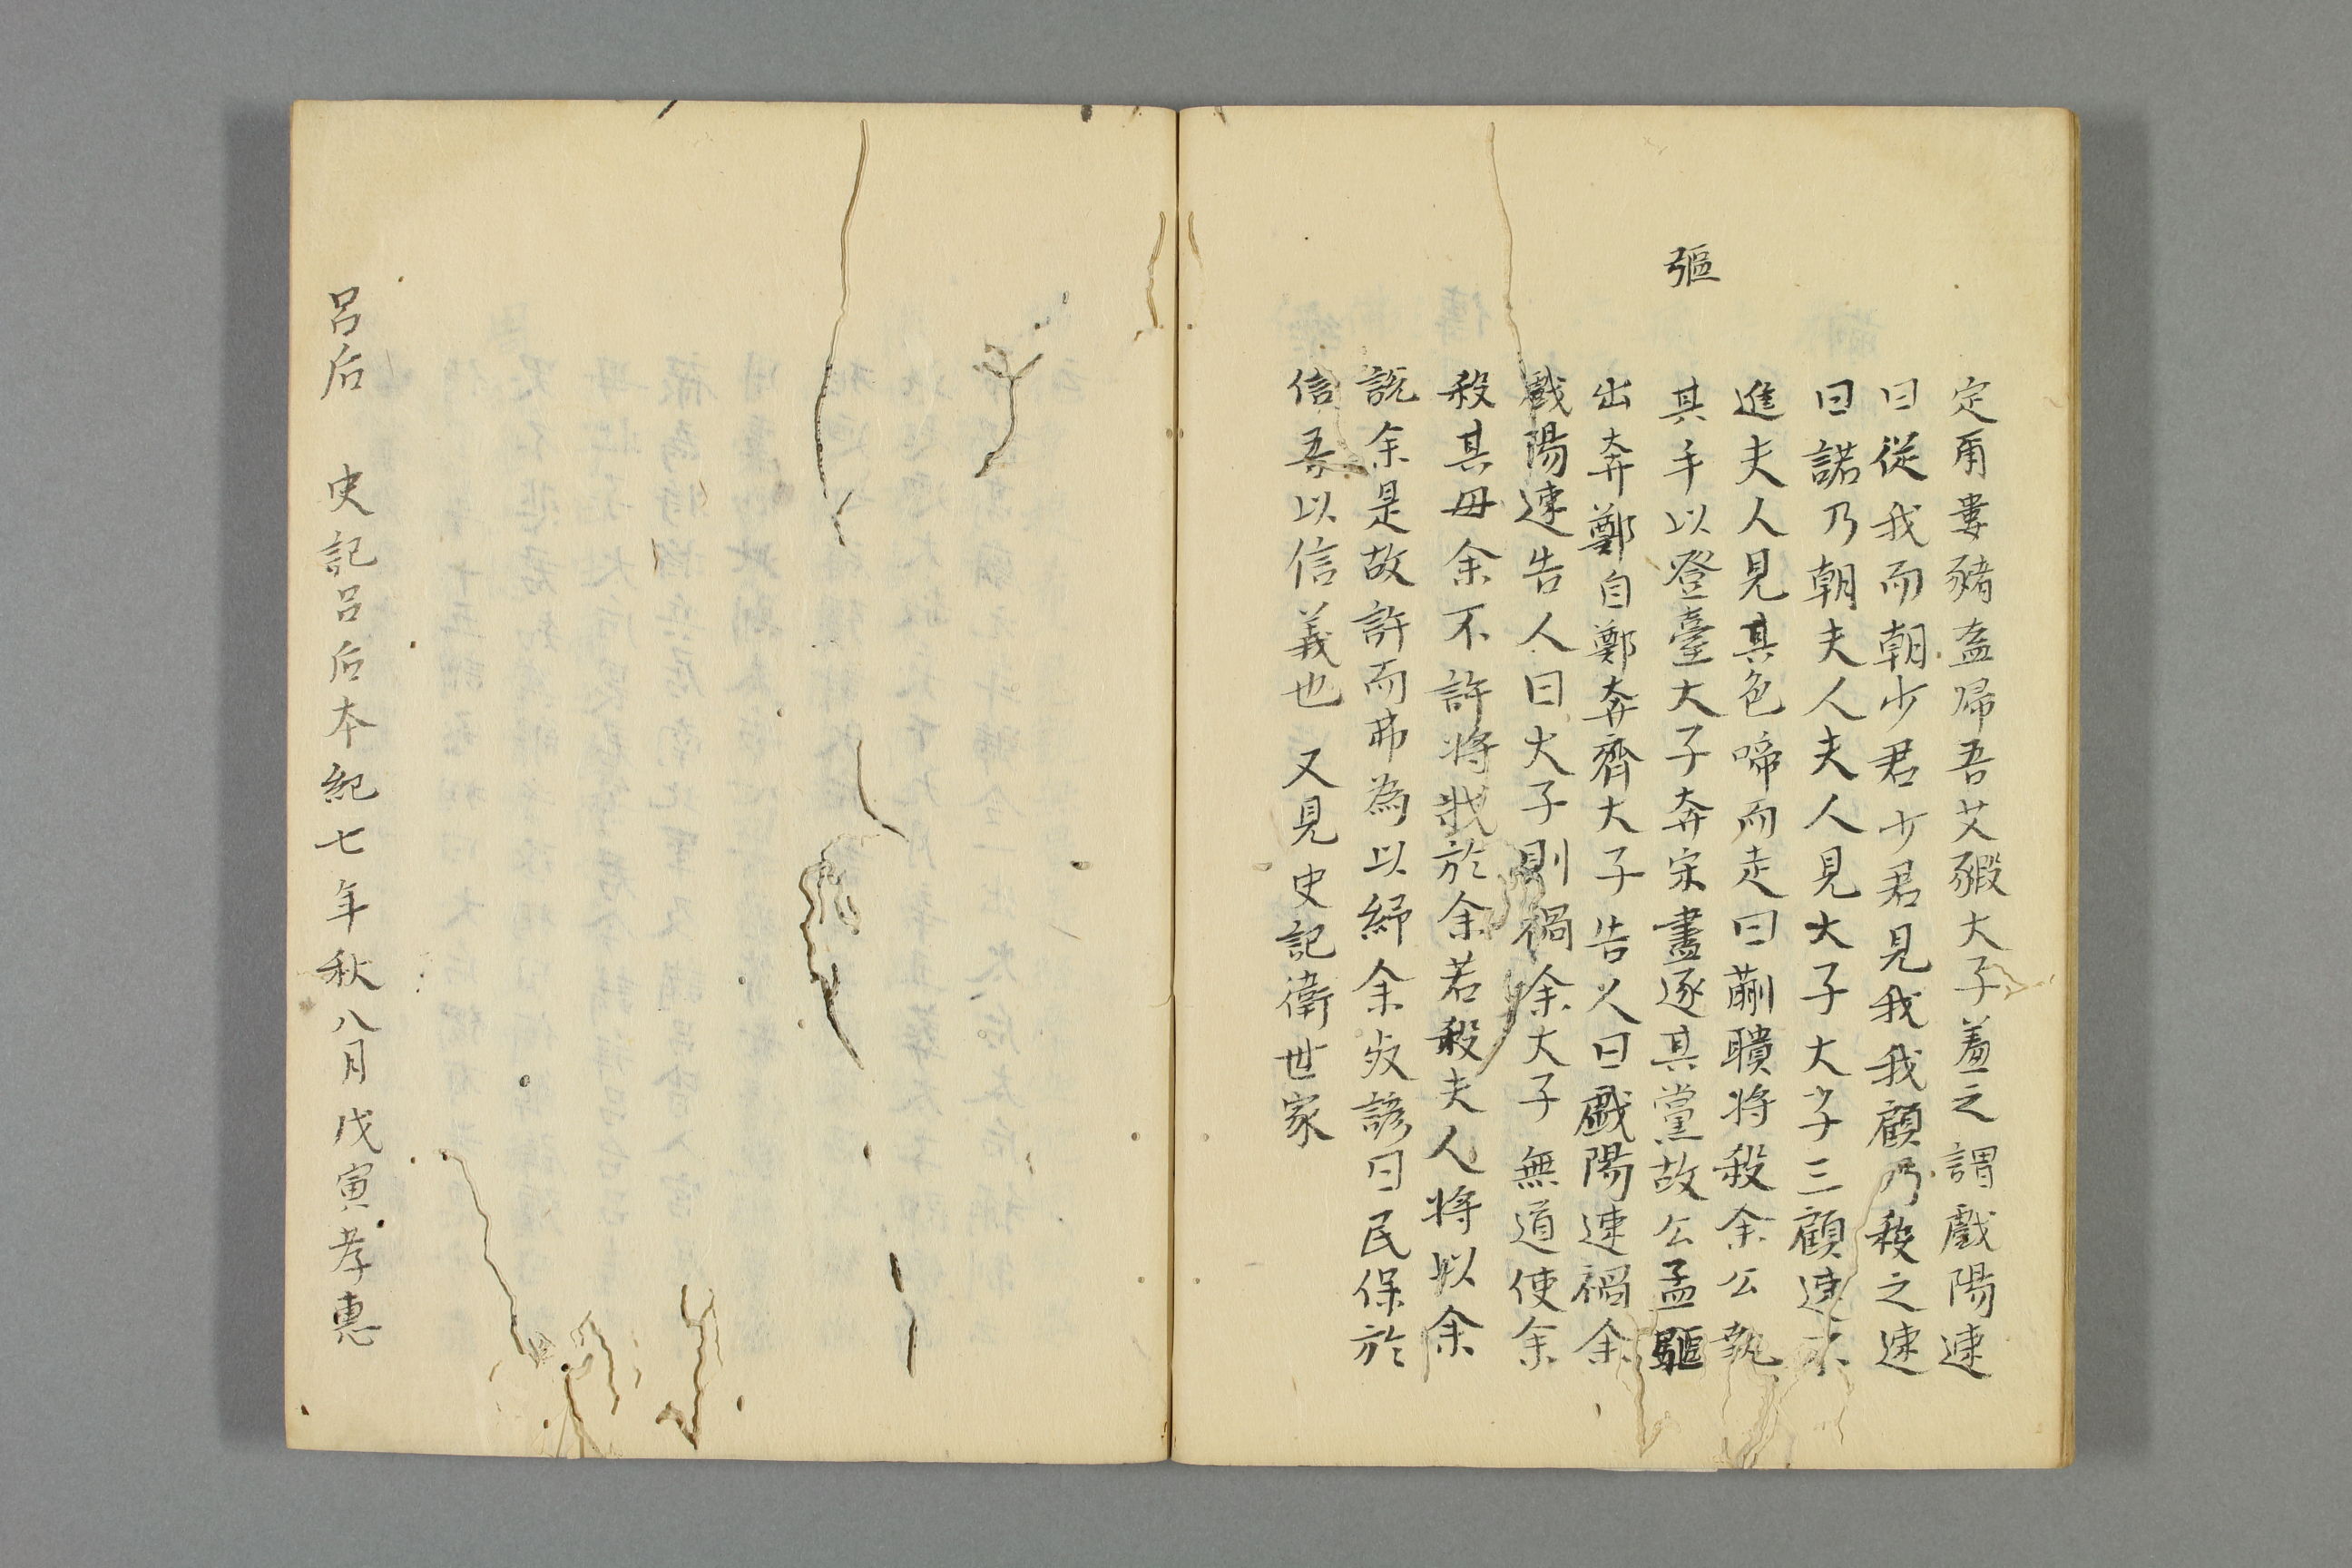 定爾婁豬盍歸吾艾豭大子羞之謂戲陽速
曰從我而朝少君少君見我我顧乃殺之速
曰諾乃朝夫人夫人見大子大子三顧速不
進夫人見其色啼而走曰蒯聵將殺余公執
彄
其手以登臺大子奔宋盡逐其黨故公孟驅
出奔鄭自鄭奔齊大子告人曰戲陽速禍余
戲陽速告人曰大子則禍余大子無道使余
殺其母余不許將戕於余若殺夫人將以余
說余是故許而弗為以紓余死諺曰民保於
信吾以信義也 又見史記衛世家
呂后 史記呂后本紀七年秋八月戊寅孝惠